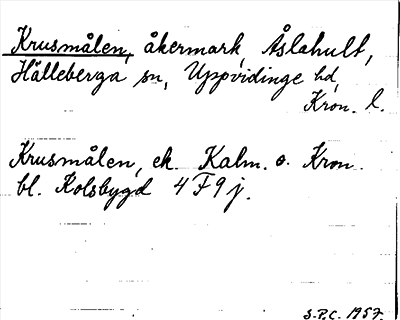 Krusmålen, åkermark, Åslahult,
Hälleberga sn, Uppvidinge hd,
Kron. l.
Krusmålen, ek. Kalm. o. Kron.
bl. Kolsbygd 4F9j.
S.P.C. 1957.